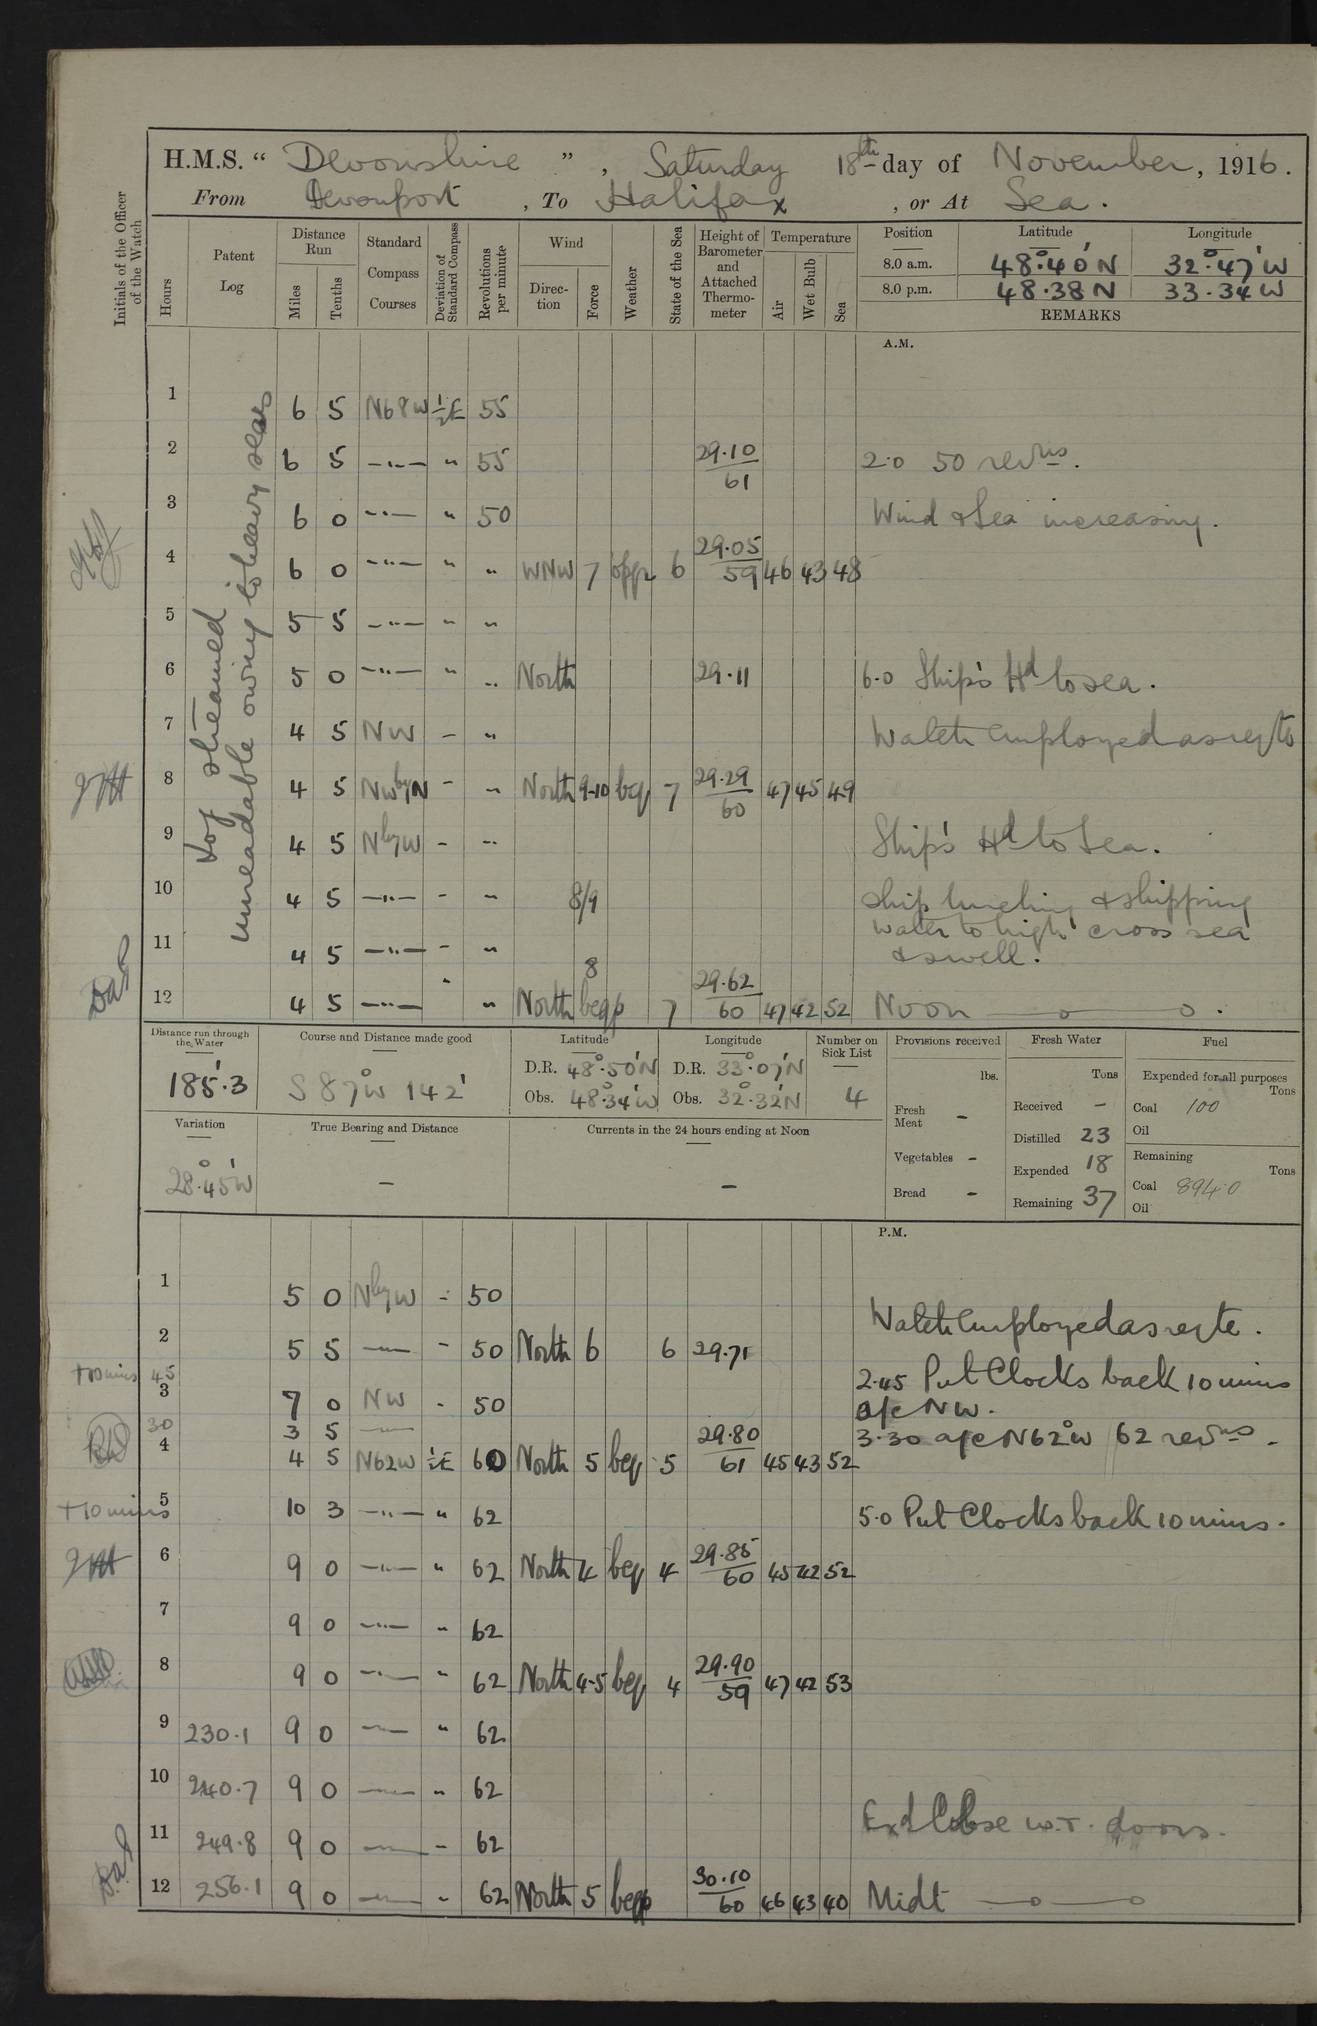 H.M.S. “ Devonshire ”, Saturday 18th day of November, 1916.
From Devonport, To Halifax, or At Sea.
Initials of the Officer of the Watch
Hours
Patent Log
Distance Run
Miles
Tenths
Standard Compass Courses
Deviation of Standard Compass
Revolutions per minute
Wind
Direction
Force
Weather
State of the Sea
Height of Barometer and Attached Thermometer
Temperature
Air
Wet Bulb
Sea
Position Latitude Longitude
8.0 a.m. 48°.40'N 32°.47'W
8.0 p.m. 48.38N 33.34W
REMARKS
A.M.
Log streamed unreadable owing to heavy seas
1 6 5 N68W ½E 55
2 6 5 —"— " 55 29.10/61 2.0 50 revns.
3 6 0 —"— " 50 Wind & Sea increasing.
4 6 0 —"— " " WNW 7 6 29.05/59 46 43 48
5 5 5 —"— " "
6 5 0 —"— " " North 29.11 6.0 Ship's Hd to sea.
7 4 5 NW - " Watch employed as reqte
8 4 5 NWbyN - " North 9-10 bcq 7 29.29/60 47 45 49
9 4 5 NbyW - " Ship's Hd to Sea.
10 4 5 —"— - " 8/9 Ship lurching & shipping
water to high cross sea
11 4 5 —"— - " & swell.
12 4 5 —"— " " North 8 bcqp 7 29.62/60 47 42 52 Noon —o—o.
Distance run through the Water
185'.3
Course and Distance made good
S 87°W 142'
Latitude
D.R. 48°.50'N
Obs. 48°.34'W
Longitude
D.R. 33°.07'N
Obs. 32°.32'N
Number on Sick List
4
Provisions received
lbs.
Fresh Meat -
Vegetables -
Bread -
Fresh Water
Tons
Received -
Distilled 23
Expended 18
Remaining 37
Fuel
Expended for all purposes
Tons
Coal 100
Oil
Remaining
Tons
Coal 8940
Oil
Variation
28°.45'W
True Bearing and Distance
-
Currents in the 24 hours ending at Noon
-
P.M.
1 5 0 NbyW - 50
Watch employed as reqte.
2 5 5 —"— - 50 North 6 6 29.71
+10 mins 45 2.45 Put Clocks back 10 mins
3 7 0 NW - 50 a/c NW.
30 3 5 —"— 3.30 a/c N62°W 62 revns.
4 4 5 N62W ½E 60 North 5 bcq 5 29.80/61 45 43 52
+10 mins 5 10 3 —"— " 62 5.0 Put Clocks back 10 mins.
6 9 0 —"— " 62 North 4 bcq 4 29.85/60 45 42 52
7 9 0 —"— " 62
8 9 0 —"— " 62 North 4-5 bcq 4 29.90/59 47 42 53
9 230.1 9 0 —"— " 62
10 240.7 9 0 —"— " 62
11 249.8 9 0 —"— - 62 Exd Close W.T. doors.
12 256.1 9 0 —"— " 62 North 5 bcqp 30.10/60 46 43 40 Midt —o—o